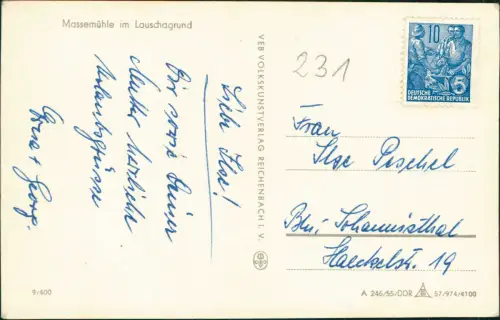 Massemühle im Lauschagrund
Liebe Ilse!
Dir sowie Deiner
Mutter herzliche
Urlaubsgrüsse
Georg.
VEB VOLKSKUNSTVERLAG REICHENBACH I. V.
231
10
5
DEUTSCHE
DEMOKRATISCHE REPUBLIK
Frau
Ilse Peschel
Bln. Johannisthal
Haeckelstr. 19
9/600
A 246/55/DDR 57/974/4100